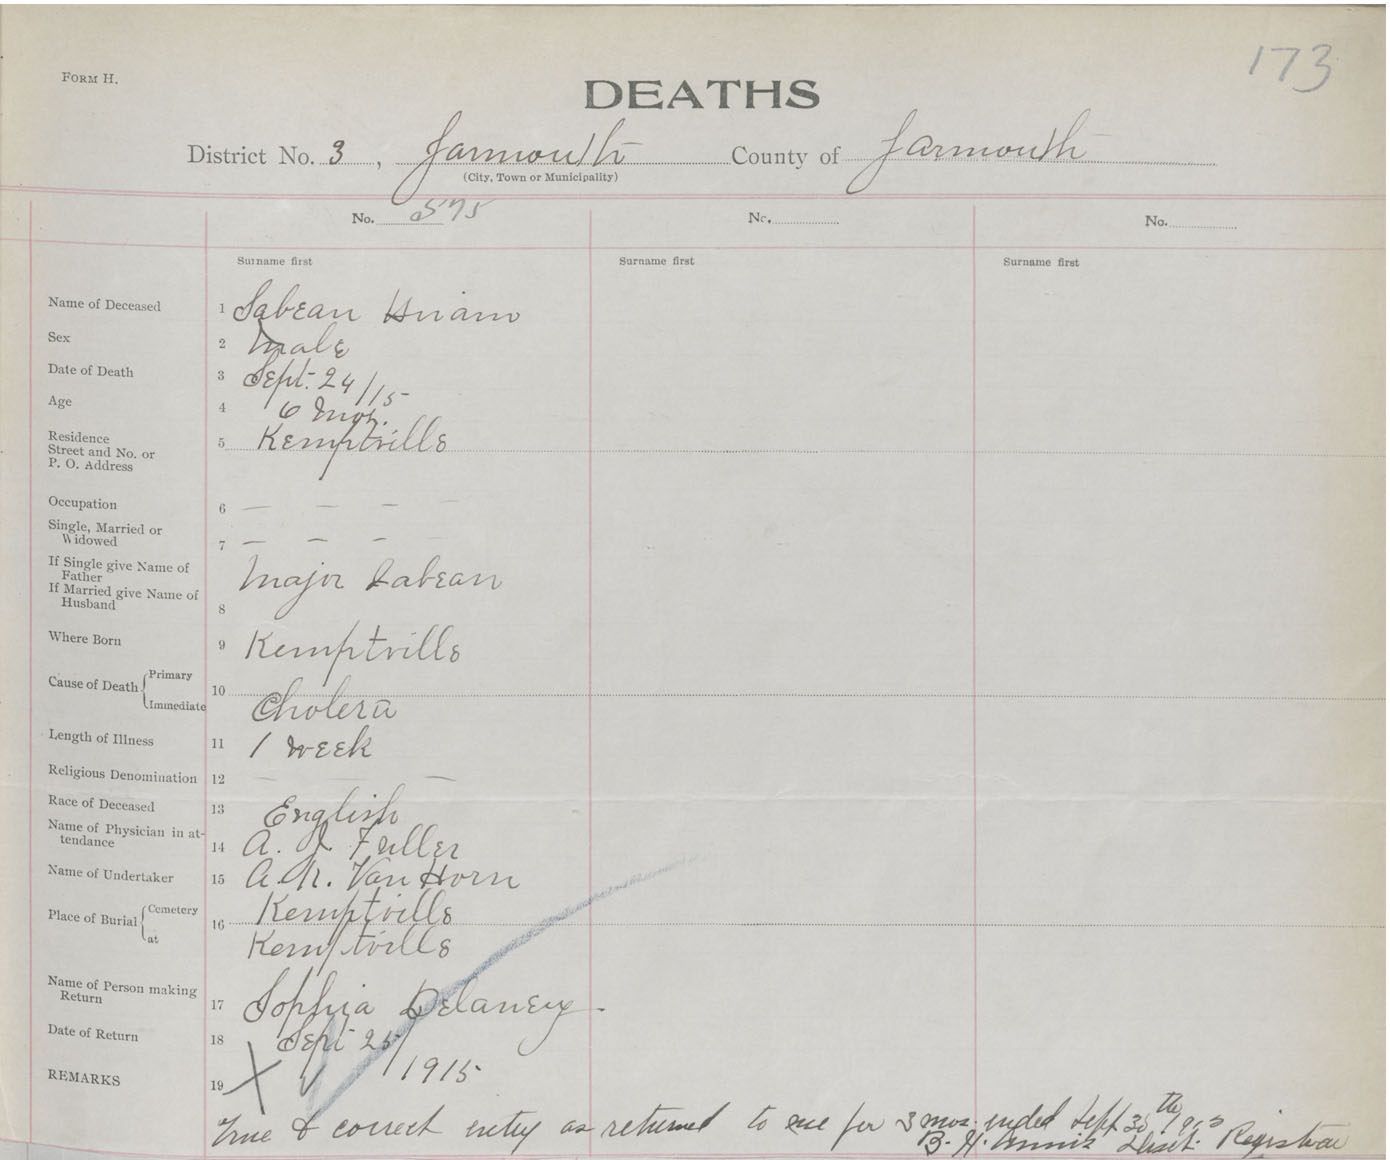 173
FORM H.
DEATHS
District No. 3, Yarmouth County of Yarmouth
(City, Town or Municipality)
No. 575 No. No.
Surname first Surname first Surname first
Name of Deceased 1 Sabean Hiram
Sex 2 Male
Date of Death 3 Sept. 24/15
Age 4 6 Mos.
Residence
Street and No. or 5 Kemptville
P. O. Address
Occupation 6 — — — —
Single, Married or
Widowed 7 — — — —
If Single give Name of
Father Major Sabean
If Married give Name of
Husband 8
Where Born 9 Kemptville
Cause of Death Primary 10
Immediate Cholera
Length of Illness 11 1 week
Religious Denomination 12 — — —
Race of Deceased 13 English
Name of Physician in at-
tendance 14 A. J. Fuller
Name of Undertaker 15 A. R. Van Horn
Place of Burial Cemetery 16 Kemptville
at Kemptville
Name of Person making
Return 17 Sophia Delaney.
Date of Return 18 Sept 25/
REMARKS 19 X 1915
True & correct entry as returned to me for 3 mos. ended Sept 30th 1915
B. H. Annis Dist. Registrar